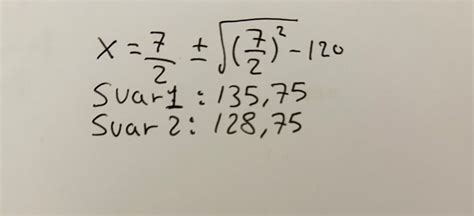 x = 7/2 ± √((7/2)² - 120
Svar1 : 135,75
Svar 2: 128,75